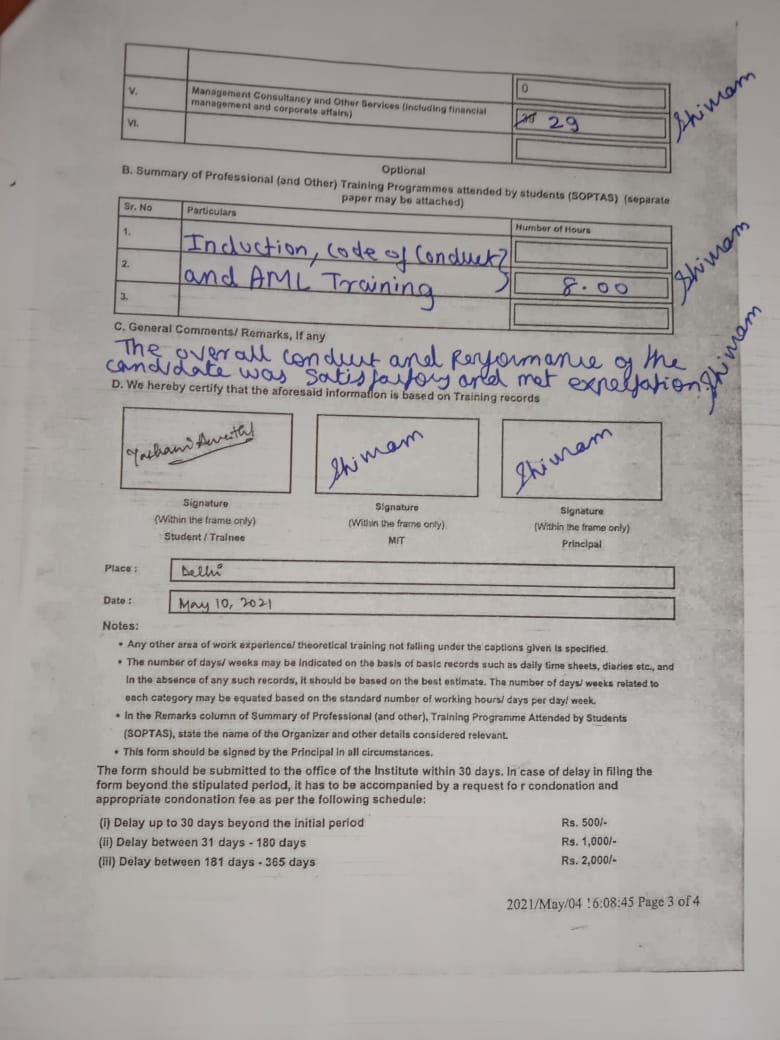 0
V. Management Consultancy and Other Services (including financial
management and corporate affairs)
29
VI.
Shivam
Optional
B. Summary of Professional (and Other) Training Programmes attended by students (SOPTAS) (separate
paper may be attached)
Sr. No Particulars Number of Hours
1. Induction, Code of Conduct
2. and AML Training 8.00
3.
Shivam
C. General Comments/ Remarks, If any
The overall conduct and Performance of the
candidate was satisfactory and met expectation.
Shivam
D. We hereby certify that the aforesaid information is based on Training records
Shivam Shivam
Signature Signature Signature
(Within the frame only) (Within the frame only) (Within the frame only)
Student / Trainee MIT Principal
Place : Delhi
Date : May 10, 2021
Notes:
• Any other area of work experience/ theoretical training not falling under the captions given is specified.
• The number of days/ weeks may be indicated on the basis of basic records such as daily time sheets, diaries etc., and
in the absence of any such records, it should be based on the best estimate. The number of days/ weeks related to
each category may be equated based on the standard number of working hours/ days per day/ week.
• In the Remarks column of Summary of Professional (and other), Training Programme Attended by Students
(SOPTAS), state the name of the Organizer and other details considered relevant.
• This form should be signed by the Principal in all circumstances.
The form should be submitted to the office of the Institute within 30 days. In case of delay in filing the
form beyond the stipulated period, it has to be accompanied by a request fo r condonation and
appropriate condonation fee as per the following schedule:
(i) Delay up to 30 days beyond the initial period Rs. 500/-
(ii) Delay between 31 days - 180 days Rs. 1,000/-
(iii) Delay between 181 days - 365 days Rs. 2,000/-
2021/May/04 16:08:45 Page 3 of 4